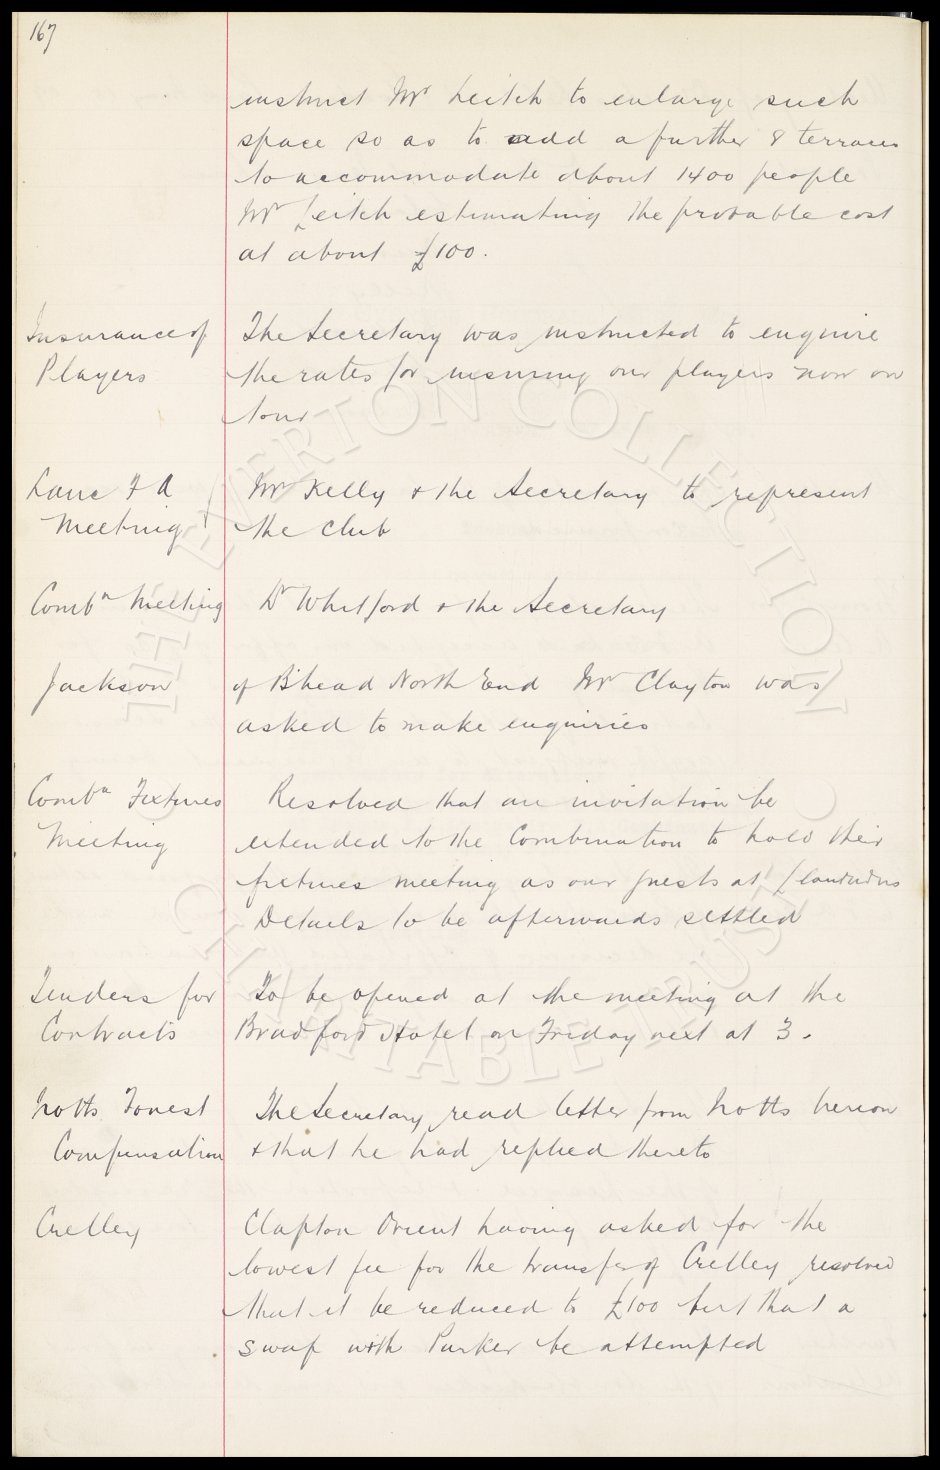 167
instruct Mr Leitch to enlarge such
space so as to add a further 8 terraces
to accommodate about 1400 people
Mr Leitch estimating the probable cost
at about £100.
Insurance of
Players
The Secretary was instructed to enquire
the rates for insuring our players now on
tour
Lanc F A
Meeting
Mr Kelly & the Secretary to represent
the club
Combn Meeting
Dr Whitford & the Secretary
Jackson
of B'head North End Mr Clayton was
asked to make enquiries
Combn Fixtures
Meeting
Resolved that an invitation be
extended to the Combination to hold their
fixtures meeting as our guests at Llandudno
Details to be afterwards settled
Tenders for
Contracts
To be opened at the meeting at the
Bradford Hotel on Friday next at 3.
Notts Forest
Compensation
The Secretary read letter from Notts hereon
& that he had replied thereto
Crelley
Clapton Orient having asked for the
lowest fee for the transfer of Crelley resolved
that it be reduced to £100 but that a
swap with Parker be attempted
THE EVERTON COLLECTION CHARITABLE TRUST ©